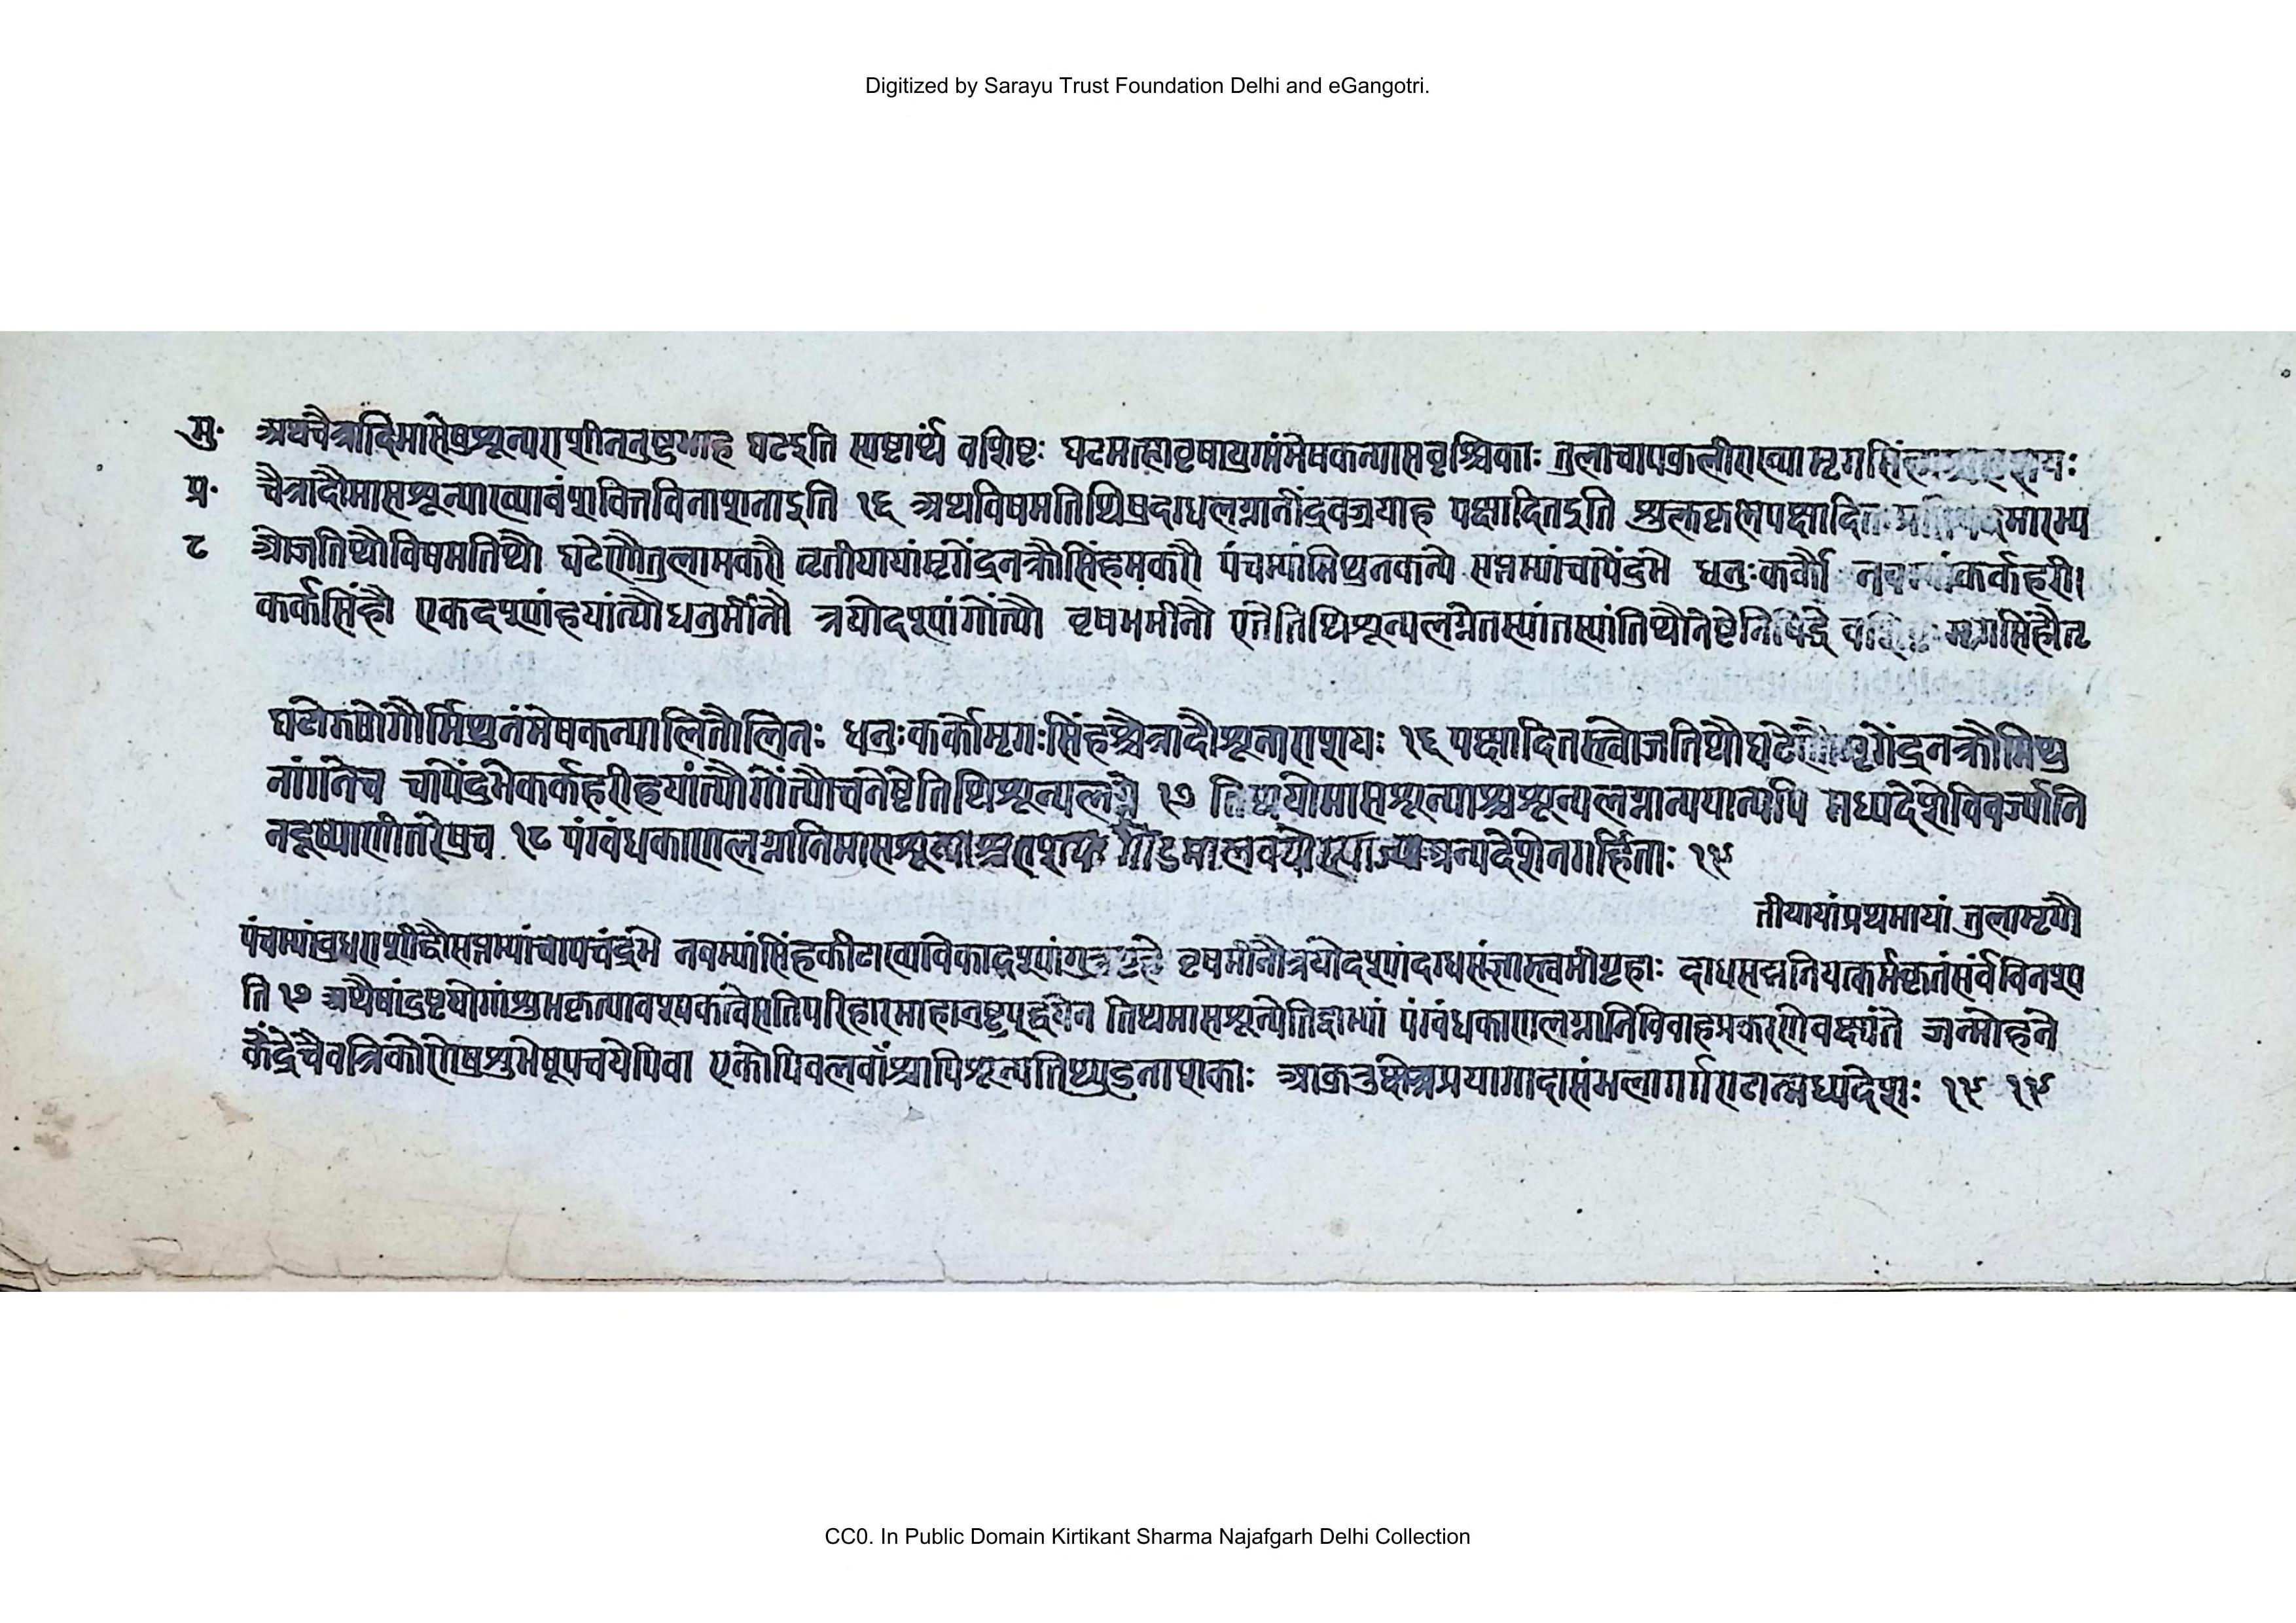 Digitized by Sarayu Trust Foundation Delhi and eGangotri.
मु॰ अथचैत्रादिमासेषुशून्यराशीननुष्टुभाह घटइति स्पष्टार्थं वशिष्टः घटमत्स्यवृषायुग्मंमेषकन्यासवृश्चिकाः तुलाचापकुलीराख्यामृगसिंहा
प्र॰ चैत्रादौमासशून्याख्यावंशवित्तविनाशनाइति १६ अथविषमतिथिषुदग्धलग्नानींद्रवज्रयाह पक्षादितइति शुल्ककृष्णपक्षादितः मारभ्य
८ ओजतिथौविषमतिथौ घटेणौतुलामकरौ तृतीयायांमृगेंद्रनक्रौसिंहमकरौ पंचम्यांमिथुनकन्ये सप्तम्यांचापेंदुभे धनुःकर्कौ नवम्यांकर्कहरी।
कर्कसिंहौ एकदश्यांहयांत्यौधनुर्मीनौ त्रयोदश्यांगोंत्यौ वृषभमीनौ एतेतिथिशून्यलग्नेतस्यांतस्यांतिथौनेष्टेनिषिद्धे मृगसिंहौतृ
घटोझषोगौर्मिथुनंमेषकन्यालितौलिनः धनुःकर्कोमृगःसिंहश्चैत्रादौशून्यराशयः १६ पक्षादितस्त्वोजतिथौघटेणौमृगेंद्रनक्रौमिथु
नांगनेच चापेंदुभेकर्कहरीहयांत्यौगोंत्यौचनेष्टेतिथिशून्यलग्ने १७ तिथयोमासशून्याश्चशून्यलग्नान्ययान्यपि मध्यदेशेविवर्ज्यानि
नदूष्याणीतरेषुच १८ पंग्वंधकाणलग्नानिमासशून्याश्चराशयः गौडमालवयोस्त्याज्याअन्यदेशेनगर्हिताः १९
तीयायांप्रथमायां तुलामृगौ
पंचम्यांबुधराशीद्वौसप्तम्यांचापचंद्रभे नवम्यांसिंहकीटाख्यावेकादश्यांगुरुगृहे वृषमीनौत्रयोदश्यांदग्धसंज्ञास्त्वमीगृहाः दग्धसद्मनियत्कर्मकृतंसर्वंविनश्य
ति १७ अथैषांदुष्टयोगांशुभकृत्यावश्यकत्वेसतिपरिहारमाहानुष्टुप्द्वयेन तिथिमासशून्येतिद्वाभ्यां पंग्वंधकाणलग्नानिविवाहप्रकरणेवक्ष्यंते
केंद्रेचैवत्रिकोणेषुशुभेषूपचयेपिवा एकोपिबलवांश्चापिशून्यतिथ्युडुनाशकाः १९ १९
CC0. In Public Domain Kirtikant Sharma Najafgarh Delhi Collection